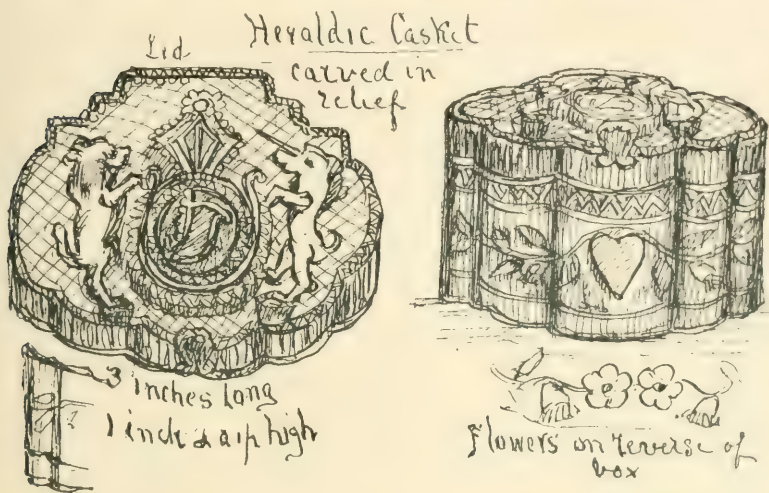 Heraldic Casket
Lid
carved in
relief
3 inches long
1 inch &
high
Flowers on reverse of
box